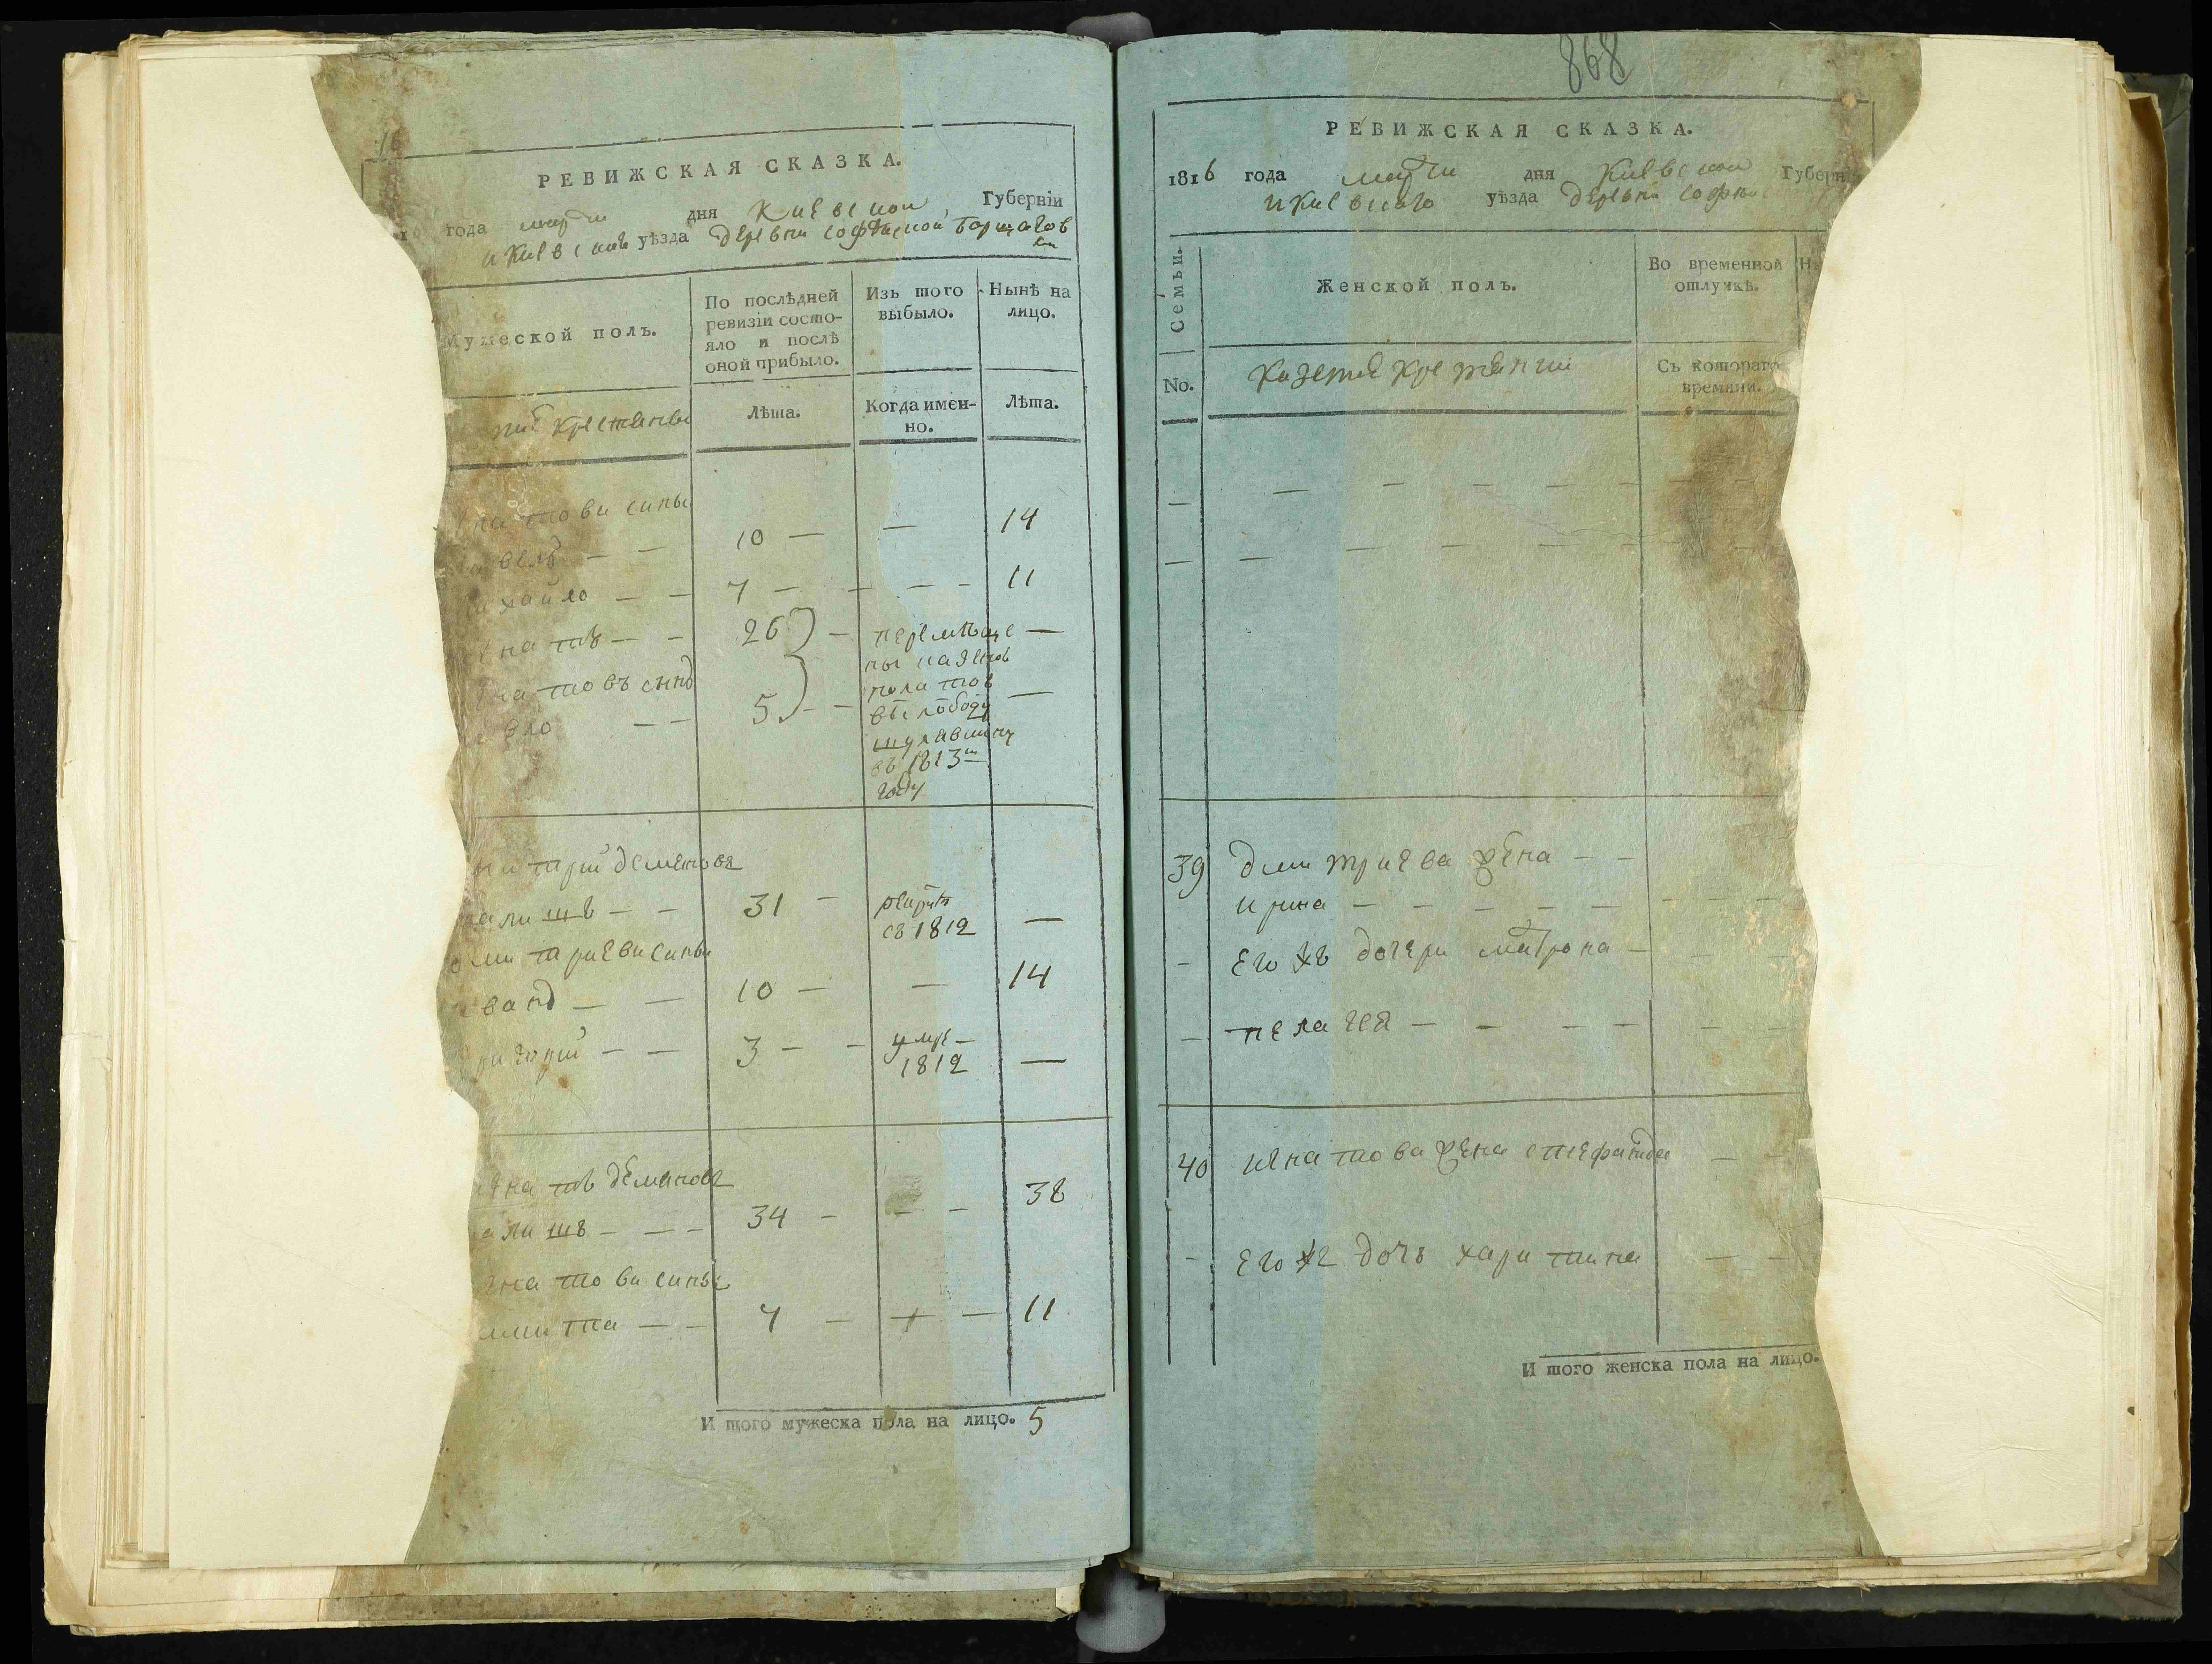 РЕВИЖСКАЯ СКАЗКА.
года марта дня Киевской Губерніи
и Киевского уѣзда деревни софѣской Борщагов
ки
Мужеской полъ.
По послѣдней
ревизіи состо-
яло и послѣ
оной прибыло.
Изъ того
выбыло.
Нынѣ на
лицо.
крестяны
Лѣта.
Когда имен-
но.
Лѣта.
натови сины
велъ — — 10 — — 14
хайло — — 7 — — — — 11
натъ — — 26 — переміще —
ны на
натовъ сынъ
вло — — 5 — — —
въ слободу
въ 1813м
году
митрий деменовъ
алишъ — — 31 — рекрутъ
съ 1812 —
митриеви сины
ванъ — — 10 — — 14
ригорий — — 3 — — умре —
1812 —
гнатъ деменовъ
алишъ — — — 34 — — — 38
гнатови сины
мита — — 7 — — — 11
И того мужеска пола на лицо. 5
868
РЕВИЖСКАЯ СКАЗКА.
1816 года марта дня Киевской Губерн
и Киевского уѣзда деревни софѣ
Семьи.
Женской полъ.
Во временной
отлучкѣ.
Ны
No.
Казенніе крестянки
Съ котораго
времяни.
39 дмитриева жена — —
ирина — — — — — — — —
— его жъ дочери матрона — — —
— пелагея — — — — — —
40 игнатова жена стефанида —
— его жъ дочъ харитина — —
И того женска пола на лицо.